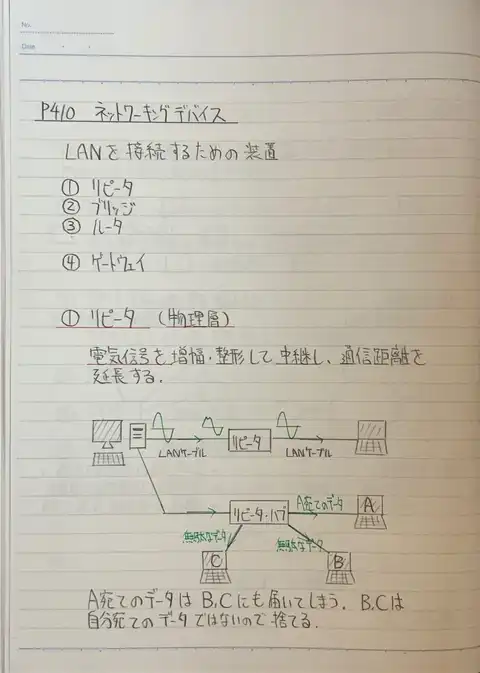 No.
Date
P410 ネットワーキングデバイス
LANを接続するための装置
① リピータ
② ブリッジ
③ ルータ
④ ゲートウェイ
① リピータ (物理層)
電気信号を増幅・整形して中継し、通信距離を
延長する.
リピータ
LANケーブル
LANケーブル
A宛てのデータ
リピータ・ハブ
A
無駄なデータ
無駄なデータ
C
B
A宛てのデータはB,Cにも届いてしまう. B,Cは
自分宛てのデータではないので捨てる.